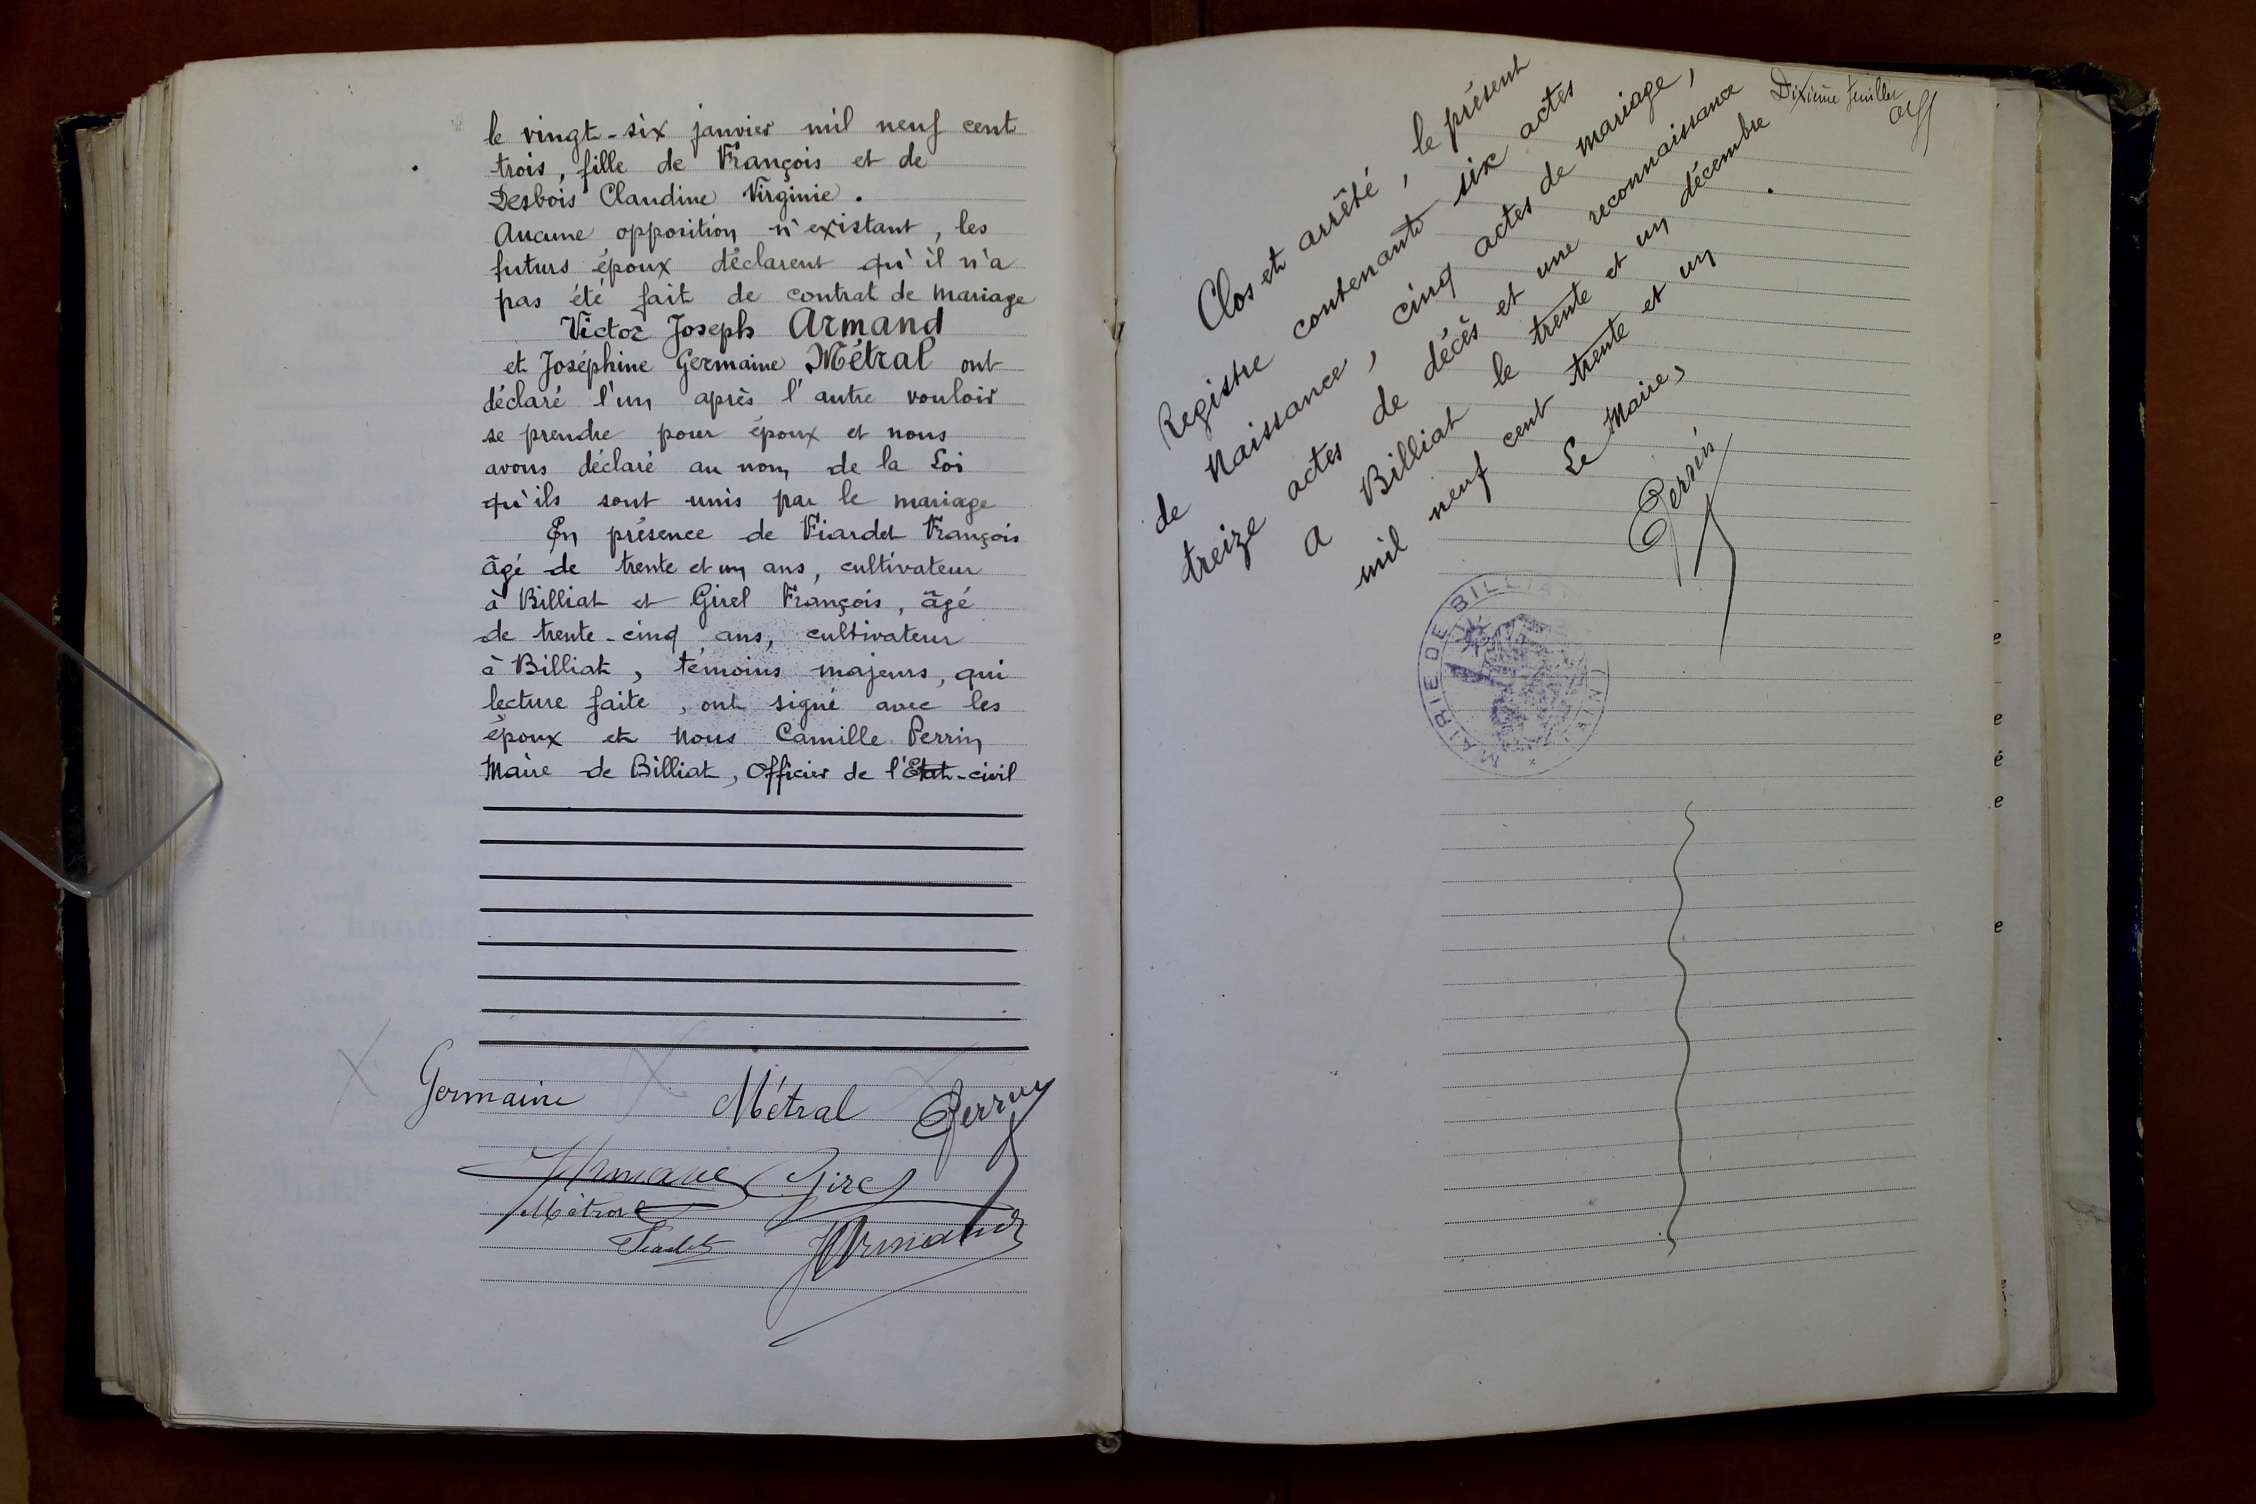 le vingt-six janvier mil neuf cent
trois, fille de François et de
Desbois Claudine Virginie.
Aucune opposition n'existant, les
futurs époux déclarent qu'il n'a
pas été fait de contrat de mariage
Victor Joseph Armand
et Joséphine Germaine Métral ont
déclaré l'un après l'autre vouloir
se prendre pour époux et nous
avons déclaré au nom de la Loi
qu'ils sont unis par le mariage
En présence de Fiardet François
âgé de trente et un ans, cultivateur
à Billiat et Girel François, âgé
de trente-cinq ans, cultivateur
à Billiat, témoins majeurs, qui
lecture faite, ont signé avec les
époux et Nous Camille Perrin
Maire de Billiat, Officier de l'Etat-civil
Germaine Métral Perrin
Armand Girel
Métral
Fiardet Armand
Dixième feuillet
Clos et arrêté, le présent
Registre contenant six actes
de Naissance, cinq actes de mariage,
treize actes de décès et une reconnaissance
A Billiat le trente et un décembre
mil neuf cent trente et un.
Le Maire,
Perrin
MAIRIE DE BILLIAT (AIN)